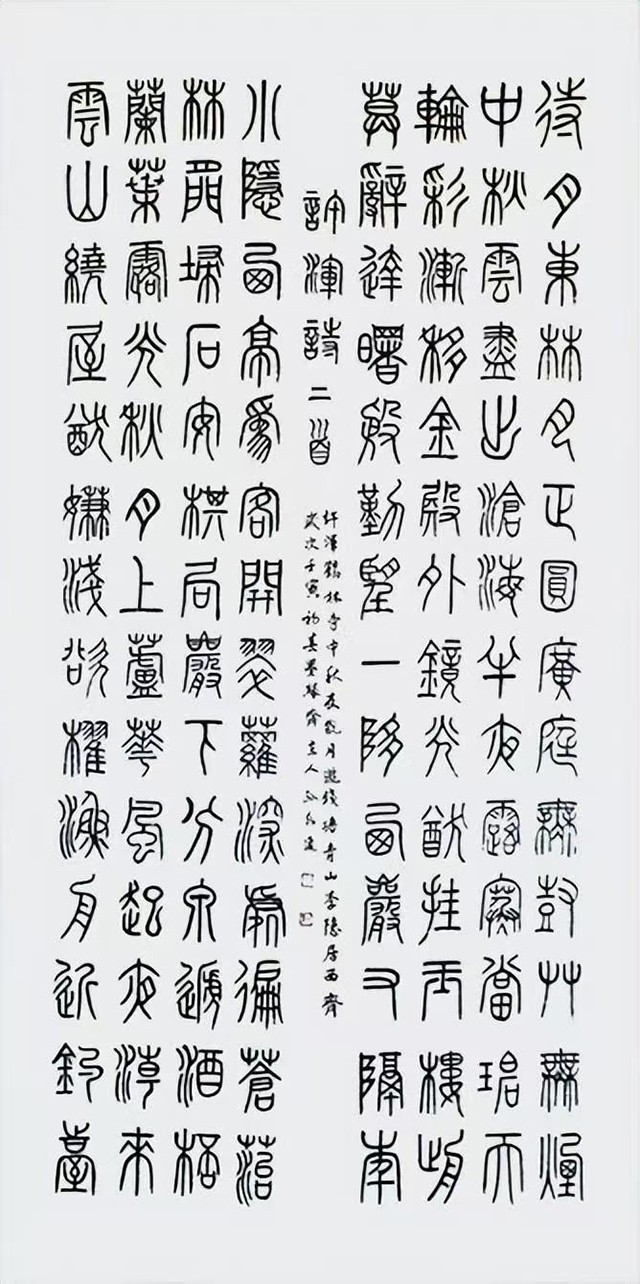 待月東林月正圓廣庭無樹艸無煙
中秋雲盡出滄海半夜露寒當碧天
輪彩漸移金殿外鏡光猶挂玉樓前
莫辭達曙殷勤望一陊西巖又隔年
許渾詩二首
許渾鶴林寺中秋夜翫月遊錢塘青山李隱居西齋
歲次壬寅初春墨齋主人
小隱西亭為客開翠蘿深處徧蒼苔
林間埽石安棋局巖下分泉遞酒桮
蘭葉露光秋月上蘆花風起夜潮來
雲山繞屋猶嫌淺欲櫂漁舟近釣臺